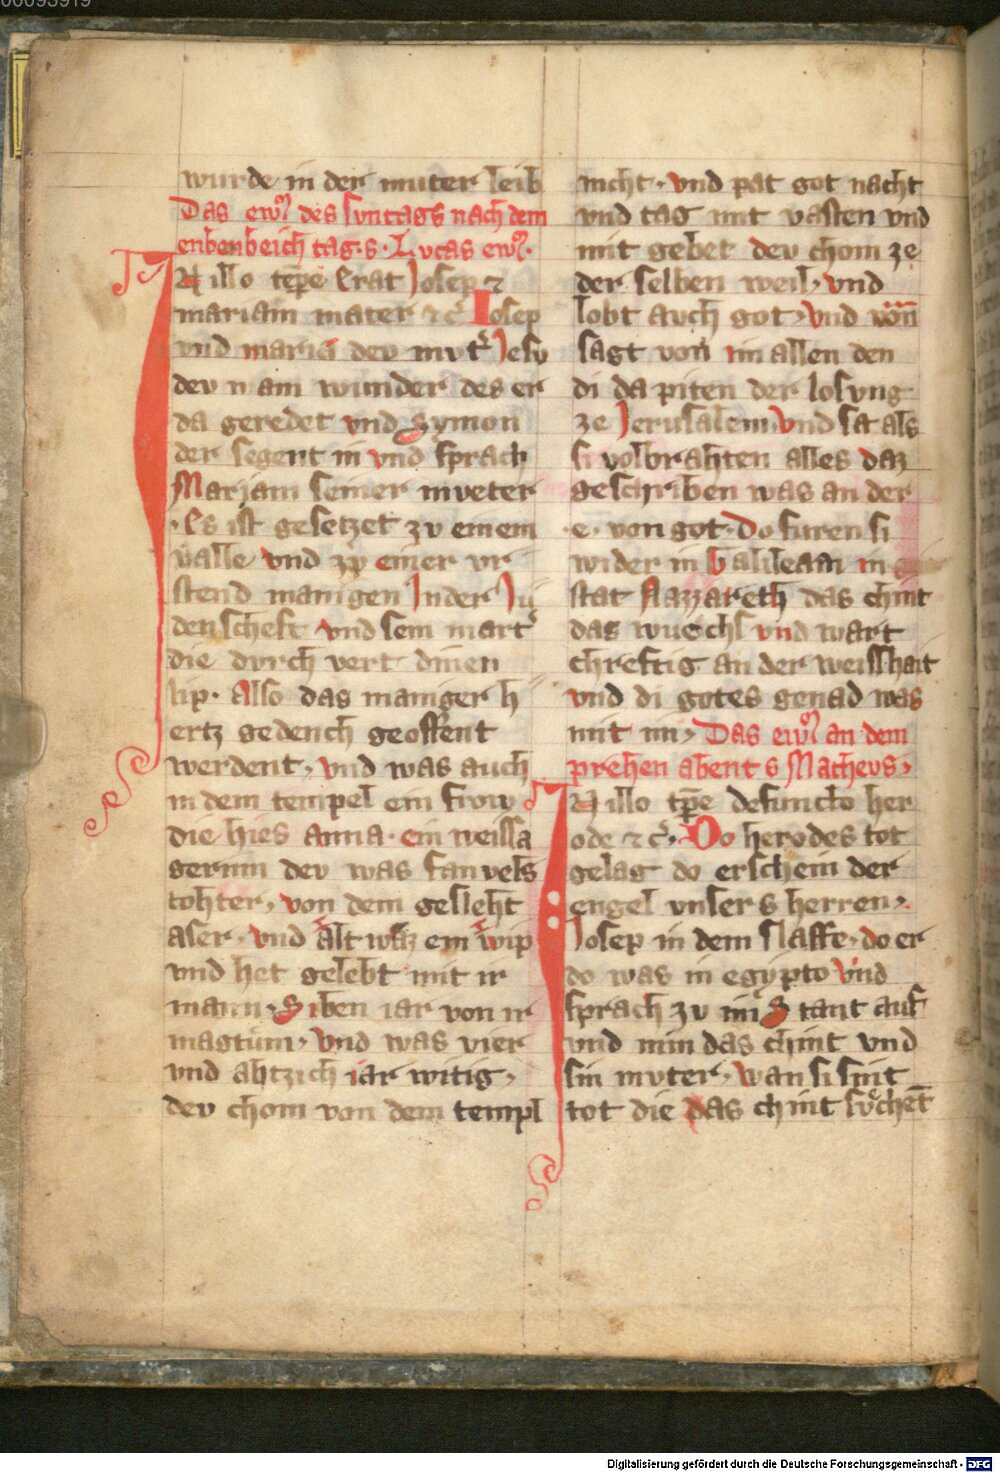 wurde in der muter leib
Das ew͛ des suntags nach dem
enbenbeich tag. s. Lucas ew͛.
IN illo tēpe Erat Josep ⁊
mariam mater ⁊ c̉ Iosep
vnd maria dev mvt̉ Jesv
dev nam wunder des er
da geredet vnd Symon
der segent in vnd sprach
Marjam seiner mveter
. Es ist gesetzet zv einem
valle vnd zv einer vr
stend manigen Jn der Ju
denscheft vnd sein mart̉
die dvrch vert dinen
lip. Also das maniger h
ertz gedench geoffent
werdent, vnd was auch
in dem tempel ein frow
die hies anna. ein weissa
gerinn dev was fanvels
tohter, von dem gesleht
aser. vnd alt was ein wip
vnd het gelebt mit ir
mann. Siben iar von ir
magtům, vnd was vier
vnd ahtzich iar witig,
dev chom von dem templ
nicht. vnd pat got nacht
vnd tag mit vasten vnd
mit gebet dev chom ze
der selben weil, vnd
lobt avch got, vnd
sagt von im allen den
di da piten der losvng
ze Jerusalem, vnd sa als
si volbrahten alles daz
geschriben was an der
.e. von got. Do furen si
wider in Galileam in
stat Nazzareth das chint
das wuechs vnd wart
chreftig an der weisshait
vnd di gotes genad was
mit im, Das ew͛ an dem
prehen abent s Matheus,
IN illo tp̄e defuncto her
ode ⁊ c̉. Do herodes tot
gelag do erschein der
engel vnsers herren,
Josep in dem slaffe, do er
do was in egypto vnd
sprach zv im Stant auf
vnd nim das chint vnd
sin mvter, wan si sint
tot die das chint sůchet̄
Digitalisierung gefördert durch die Deutsche Forschungsgemeinschaft - DFG